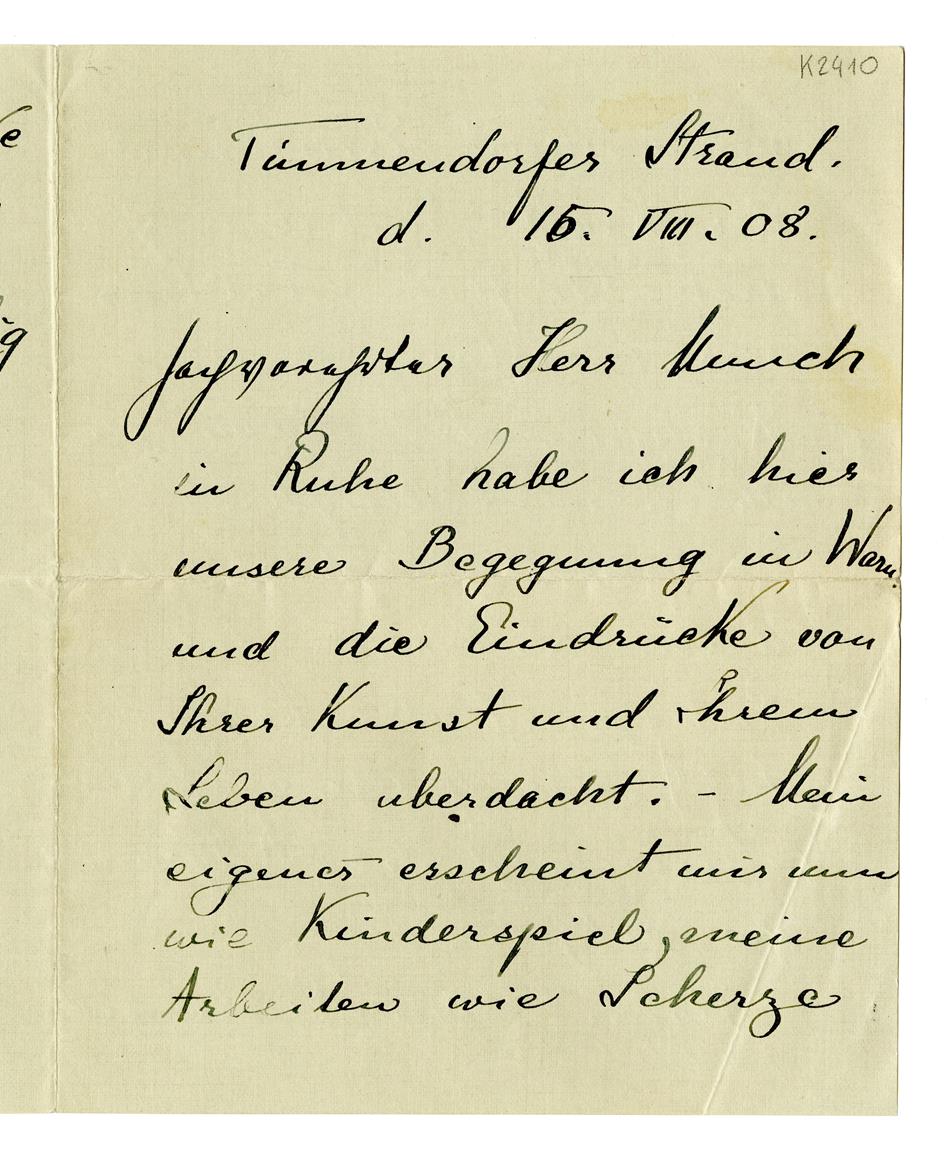 K2410
Timmendorfer Strand.
d. 15. VIII. 08.
Hochverehrter Herr Munch
in Ruhe habe ich hier
unsere Begegnung in Warn.
und die Eindrücke von
Ihrer Kunst und Ihrem
Leben uberdacht. - Mein
eigenes erscheint mir nun
wie Kinderspiel, meine
Arbeiten wie Scherze